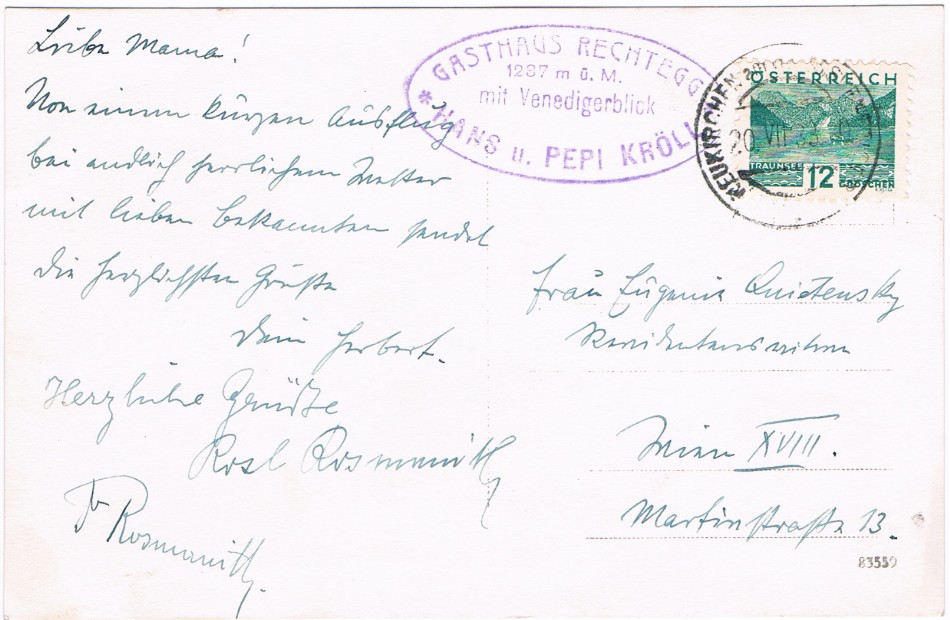 Liebe Mama!
Von einem kurzen Ausflug
bei endlich herrlichem Wetter
mit lieben Bekannten sendet
die herzlichsten Grüße
Dein Herbert.
Herzliche Grüße
Rosl Rosmanith
Rosmanith
GASTHAUS RECHTEGG
1287 m ü. M.
mit Venedigerblick
* HANS u. PEPI KRÖLL
NEUKIRCHEN
20.VII
ÖSTERREICH
TRAUNSEE
12 GROSCHEN
Frau Eugenie Quietensky
Revidentenswitwe
Wien XVIII.
Martinstraße 13.
83559